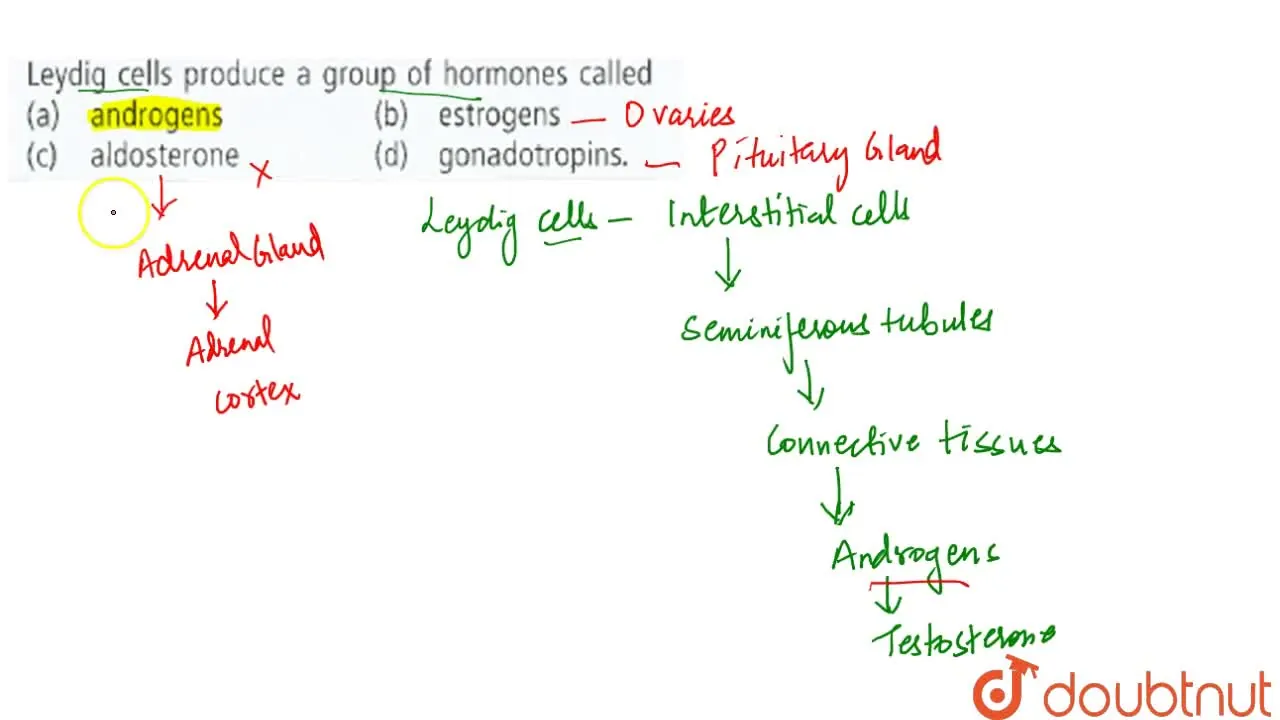 Leydig cells produce a group of hormones called
(a) androgens (b) estrogens — Ovaries
(c) aldosterone x (d) gonadotropins. — Pituitary Gland
Leydig cells — Interstitial cells
Adrenal Gland
Seminiferous tubules
Adrenal
cortex
Connective tissues
Androgens
Testosterone
doubtnut